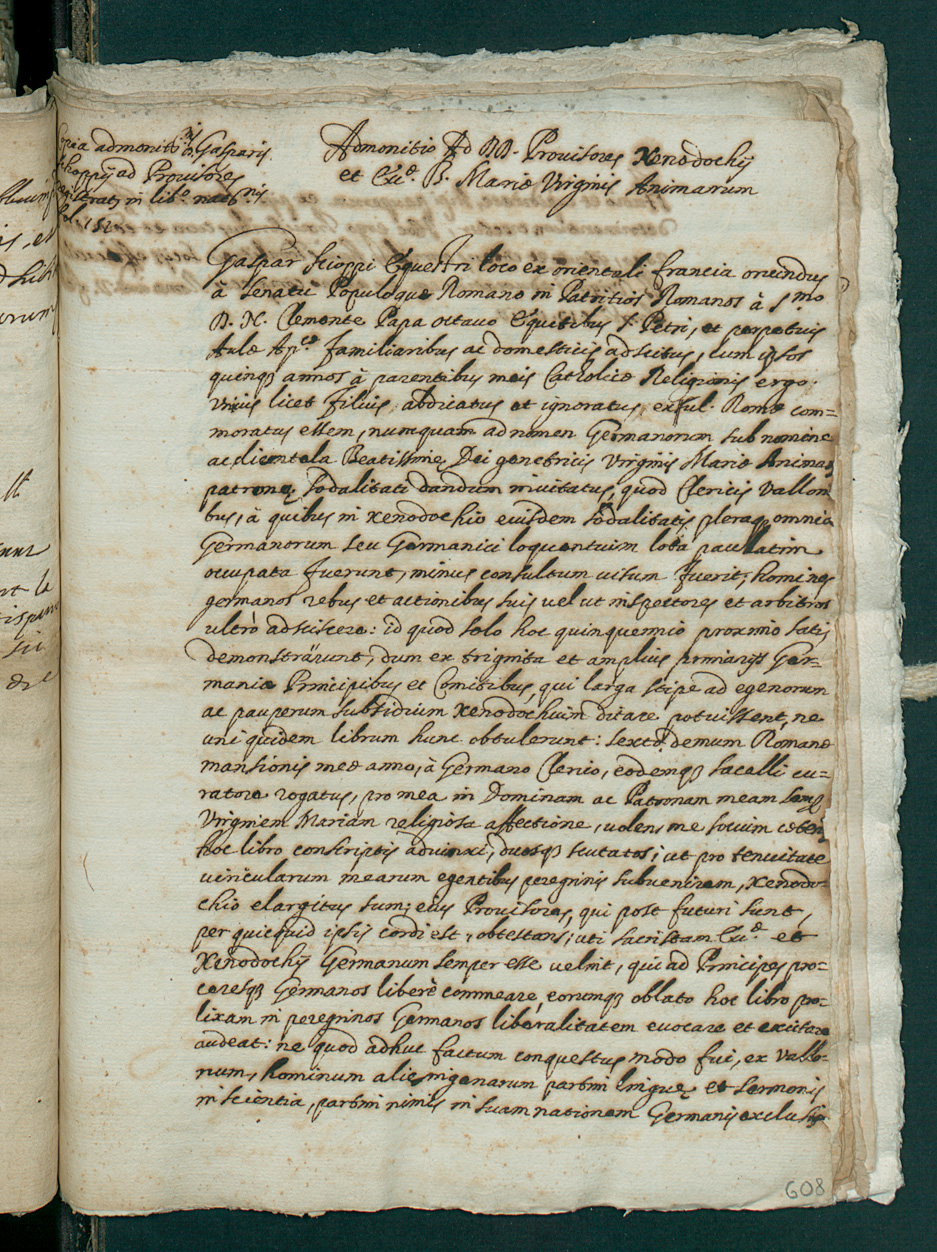 Copia admonitio.nis Gasparis
Schoppij ad Provisores
registrata in lib.o natio.nis
fol. 152
Admonitio Ad DD. Provisores Xenodochij
et Ecc.æ B. Mariæ Virginis Animarum
Gaspar Scioppi Equestri loco ex orientali francia oriundus
à Senatu Populoque Romano in Patritios Romanos à S.mo
D. N. Clemente Papa octavo Equitibus S. Petri, et perpetuis
Aulæ Ap.cæ familiaribus ac domesticis adscitus, cum ipsos
quinq annos à parentibus meis Catholicæ Religionis ergo.
Vnius licet filius, abdicatus et ignoratus, exsul. Romæ com=
moratus essem, numquam ad nomen Germanorum sub nomine
ac clientela Beatissimę Dei genetricis Virginis Mariæ Animar
patronę Sodalitati dandum invitatus, quod Clericis Vallon
bus, à quibus in xenodochio eiusdem Sodalitatis pleraq omnia
Germanorum seu Germanicè loquentium loca paulatim
occupata fuerunt, minus consultum visum fuerit, homines
germanos rebus et actionibus suis velut inspectores et arbitros
ultrò adsciscere: id quod solo hoc quinquennio proximo satis
demonstrârunt, dum ex triginta et amplius primarijs Ger=
maniæ Principibus et Comitibus, qui larga stipe ad egenorum
ac pauperum subsidium Xenodochium ditare potuissent, ne
uni quidem librum hunc obtulerunt: sexto demum Romanæ
mansionis meæ anno, à Germano Clerico, eodemq sacelli cu=
ratore rogatus, pro mea in Dominam ac Patronam meam semp
Virginem Mariam religiosa affectione, volens me socium ceteris
hoc libro conscriptis adiunxi, duosq scutatos, ut pro tenuitate
viricularum mearum egentibus peregrinis subvenirem, Xenodo=
chio elargitus sum; eius Provisores, qui post futuri sunt,
per quicquid ipsis cordi est, obtestans, uti sacristam Ecc.æ et
Xenodochij Germanum semper esse velint, qui ad Principes pro=
ceresq Germanos liberè commeare, eorumq oblato hoc libro pro=
lixam in peregrinos Germanos liberalitatem evocare et excitare
audeat: ne quod adhuc factum conquestus modo fui, ex Vallo=
num, hominum alienigenarum partim linguę et sermonis
inscientia, partim nimis in suam nationem Germanis exclusis
608